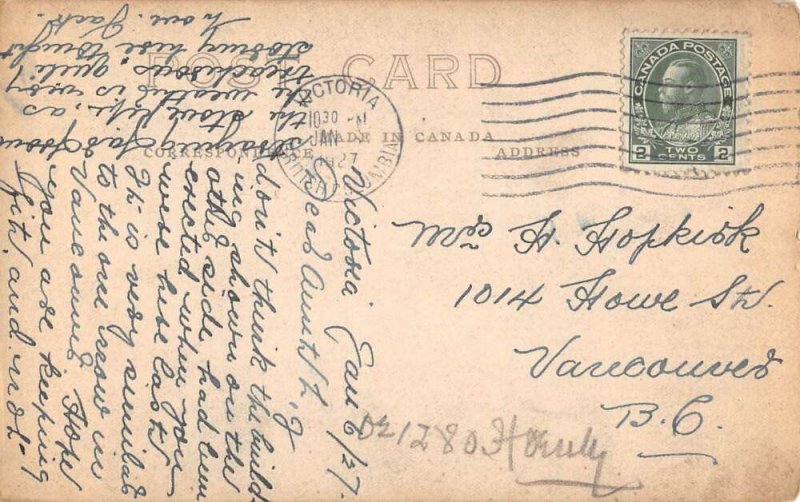 POST CARD
MADE IN CANADA
CORRESPONDENCE
ADDRESS
VICTORIA
1030 PM
JAN
1927
BRITISH COLUMBIA
CANADA POSTAGE
2 TWO CENTS 2
Mr H. Hopkirk
1014 Howe St.
Vancouver
B.C.
1280
Victoria Jan 6/27.
Dear Aunt L, I
don't think the build
ing shown on the
other side had been
erected when you
were here last.
It is very similar
to the one now in
Vancouver. Hope
you are keeping
fit and not
straying far from
the stove, as
the weather is very
treacherous, quite
stormy here tonight
Love. Jack.